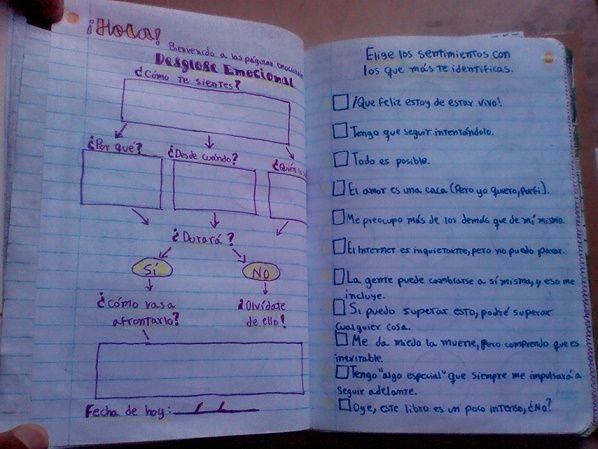 ¡Hola!
Bienvenido a las páginas emocionales
Desglose Emocional
¿Cómo te sientes?
¿Por qué? ¿Desde cuándo? ¿Quién
¿Durará?
Sí NO
¿Cómo vas a ¡Olvídate
afrontarlo? de ello!
Fecha de hoy: / /
Elige los sentimientos con
los que más te identificas.
¡Que feliz estoy de estar vivo!
Tengo que seguir intentándolo.
Todo es posible.
El amor es una caca (Pero yo quiero, Porfi).
Me preocupo más de los demás que de mí mismo.
El Internet es inquietante, pero no puedo parar.
La gente puede cambiarse a sí misma, y eso me
incluye.
Si puedo superar esto, podré superar
cualquier cosa.
Me da miedo la muerte, pero comprendo que es
inevitable.
Tengo "algo especial" que siempre me impulsará a
seguir adelante.
Oye, este libro es un poco intenso, ¿No?